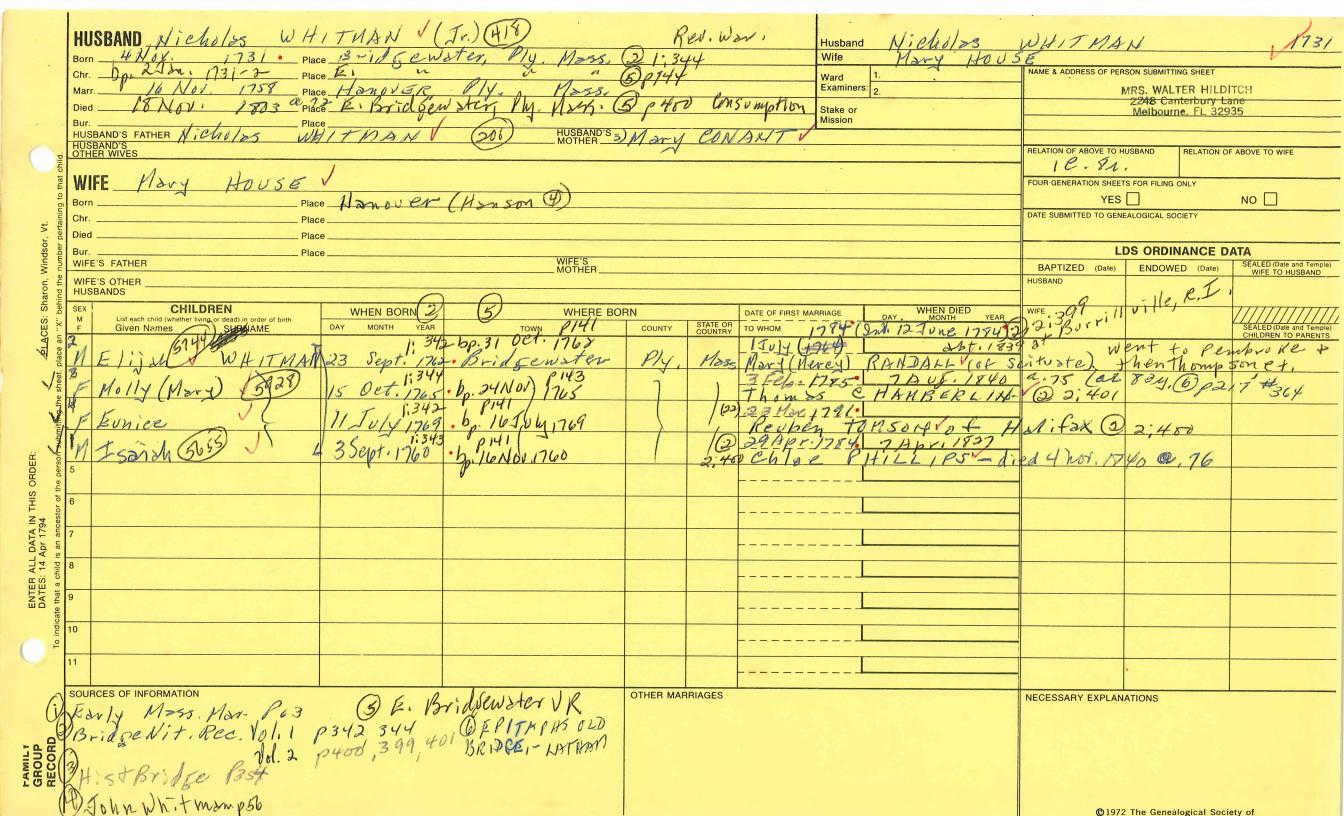 HUSBAND Nicholas WHITMAN ✓ (Jr.) 418 Rev. War.
Born 4 Nov. 1731 Place Bridgewater, Ply. Mass. ② 1:344
Chr. bp. 2 Jan. 1731-2 Place E. " " " ⑤ p144
Marr. 16 Nov. 1758 Place Hanover Ply. Mass.
Died 18 Nov. 1803 Place E. Bridgewater, Ply. Mass. ⑤ p400 Consumption
Bur. Place
HUSBAND'S FATHER Nicholas WHITMAN ✓ 206 HUSBAND'S MOTHER 3) Mary CONANT ✓
HUSBAND'S OTHER WIVES
WIFE Mary HOUSE ✓
Born Place Hanover (Hanson ④)
Chr. Place
Died Place
Bur. Place
WIFE'S FATHER WIFE'S MOTHER
WIFE'S OTHER HUSBANDS
Husband Nicholas WHITMAN ✓ 1731
Wife Mary HOUSE
Ward Examiners: 1. 2.
Stake or Mission
NAME & ADDRESS OF PERSON SUBMITTING SHEET
MRS. WALTER HILDITCH
2248 Canterbury Lane
Melbourne, FL 32935
RELATION OF ABOVE TO HUSBAND RELATION OF ABOVE TO WIFE
FOUR-GENERATION SHEETS FOR FILING ONLY
YES NO
DATE SUBMITTED TO GENEALOGICAL SOCIETY
LDS ORDINANCE DATA
BAPTIZED (Date) ENDOWED (Date) SEALED (Date and Temple) WIFE TO HUSBAND
HUSBAND
WIFE
SEALED (Date and Temple) CHILDREN TO PARENTS
2:399
at Burrillville, R.I.
SEX M F
CHILDREN
List each child (whether living or dead) in order of birth
Given Names SURNAME
WHEN BORN ②
DAY MONTH YEAR
⑤ WHERE BORN
TOWN COUNTY STATE OR COUNTRY
DATE OF FIRST MARRIAGE
TO WHOM
WHEN DIED
DAY MONTH YEAR
1:342 bp. 31 Oct. 1762 p141 1784 (Int. 12 June 1784 ②
2 M Elijah 5744 WHITMAN 23 Sept. 1762 Bridgewater Ply. Mass 1 July abt. 1839
Mary (Mercy) RANDALL ✓ (of Scituate) went to Pembroke & then Thompson ct.
3 F Molly (Mary) 5928 15 Oct. 1765 1:344 bp. 24 Nov 1765 p143 3 Feb. 1785 7 Aug. 1840 a. 75 (at 83y. ⑥ p217 #364
Thomas CHAMBERLIN ② 2,401
F Eunice 11 July 1769 1:342 bp. 16 July 1769 p141
Reuben TOMSON of Halifax ② 2:400
1 M Isaiah 5655 3 Sept. 1760 1:343 bp. 16 Nov. 1760 p141 ② 2:400 29 Apr. 1784 7 Apr. 1827
Chloe PHILLIPS – died 4 Nov. 1840 @ 76
5
6
7
8
9
10
11
SOURCES OF INFORMATION
① Early Mass. Mar. P63 ⑤ E. Bridgewater VR
② Bridge Vit. Rec. Vol. 1 p342 344 ⑥ EPITAPHS OLD BRIDGE. – LATHAM
Vol. 2 p400, 399, 401
③ Hist Bridge
④ John Whitman p56
OTHER MARRIAGES
NECESSARY EXPLANATIONS
ENTER ALL DATA IN THIS ORDER:
DATES: 14 Apr 1794
PLACES: Sharon, Windsor, Vt.
To indicate that a child is an ancestor of the person submitting the sheet, place an "X" behind the number pertaining to that child.
FAMILY GROUP RECORD
©1972 The Genealogical Society of